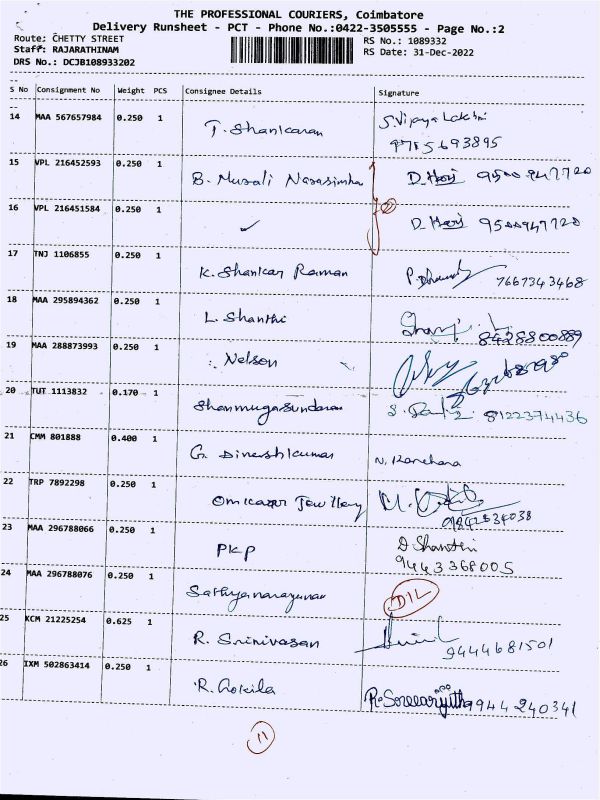 THE PROFESSIONAL COURIERS, Coimbatore
Delivery Runsheet - PCT - Phone No.:0422-3505555 - Page No.:2
Route: CHETTY STREET
RS No.: 1089332
Staff: RAJARATHINAM
RS Date: 31-Dec-2022
DRS No.: DCJB108933202
S No Consignment No Weight PCS Consignee Details Signature
14 MAA 567657984 0.250 1 T. Shankaran S. Vijaya Lakshi
9715693895
15 VPL 216452593 0.250 1 B. Murali Narasimha D. Hari 9500947720
16 VPL 216451584 0.250 1 ✓ D. Hari 9500947720
2
17 TNJ 1106855 0.250 1 K. Shankar Raman P. 7667343468
18 MAA 295894362 0.250 1 L. Shanthi 8428800889
19 MAA 288873993 0.250 1 Nelson
20 TUT 1113832 0.170 1 Shanmugasundaram S. 8122374436
21 CMM 801888 0.400 1 G. Dineshkumar N. Kanchana
22 TRP 7892298 0.250 1 Omkaar Jewllery
9842634038
23 MAA 296788066 0.250 1 PKP D Shanthi
9443368005
24 MAA 296788076 0.250 1 Sathyanarayanan DIL
25 KCM 21225254 0.625 1 R. Srinivasan 9444681501
26 IXM 502863414 0.250 1 R. Gokila 9944240341
11